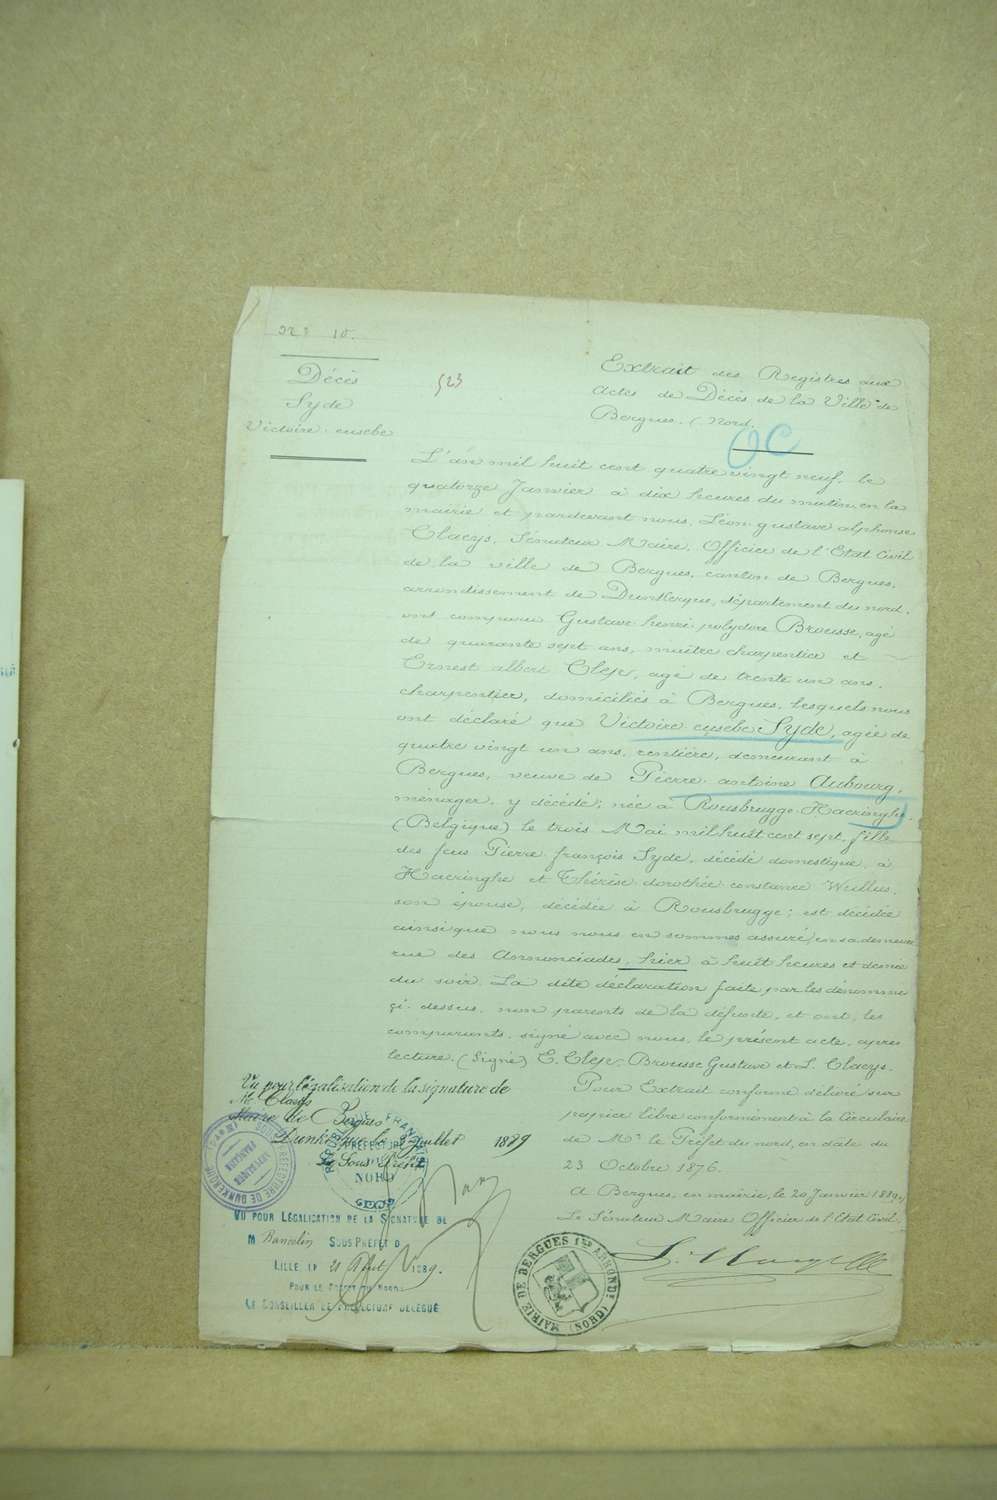 Nº 10.
Décès
Syde
Victoire eusebe
523
Extrait des Registres aux
Actes de Décès de la Ville de
Bergues. (Nord.
OC
L'an mil huit cent quatre vingt neuf, le
quatorze Janvier à dix heures du matin, en la
mairie et pardevant nous, Léon gustave alphonse
Claeys, Sénateur Maire, Officier de l'Etat Civil
de la ville de Bergues, canton de Bergues,
arrondissement de Dunkerque, département du nord,
ont comparu Gustave henri polydore Brousse, agé
de quarante sept ans, maître charpentier et
Ernest albert Clep, agé de trente un ans,
charpentier, domiciliés à Bergues, lesquels nous
ont déclaré que Victoire eusebe Syde, agée de
quatre vingt un ans, rentière, demeurant à
Bergues, veuve de Pierre antoine Aubourg,
ménager, y décédé; née à Rousbrugge-Haeringhe
(Belgique) le trois Mai mil huit cent sept, fille
des feus Pierre françois Syde, décédé domestique, à
Haeringhe et Thérèse dorothée constance Wullus,
son épouse, décédée à Rousbrugge; est décédée
ainsi que nous nous en sommes assuré, en sa demeure
rue des Annonciades, hier à huit heures et demie
du soir. La dite déclaration faite par les dénommé
çi-dessus, non parents de la défunte, et ont, les
comparants, signé avec nous, le présent acte, après
lecture. (Signé) E. Clep, Brousse Gustave et L. Claeys.
Pour Extrait conforme délivré sur
papier libre conformément à la Circulaire
de Mr. le Préfet du nord, en date du
23 Octobre 1876.
A Bergues, en mairie, le 20 Janvier 1889.
Le Sénateur Maire Officier de l'Etat Civil,
Vu pour légalisation de la signature de
Mr Claeys
Maire de Bergues
Dunkerque le Juillet 1889
Le Sous Préfet
SOUS PRÉFECTURE DE DUNKERQUE
RÉPUBLIQUE FRANÇAISE
RÉPUBLIQUE FRANÇAISE
PRÉFECTURE
NORD
VU POUR LÉGALISATION DE LA SIGNATURE DE
M Bancelin SOUS PRÉFET D
LILLE, LE 21 1889.
POUR LE PRÉFET DU NORD
LE CONSEILLER DE PRÉFECTURE DÉLÉGUÉ
MAIRIE DE BERGUES 1ER ARRONDT. (NORD)